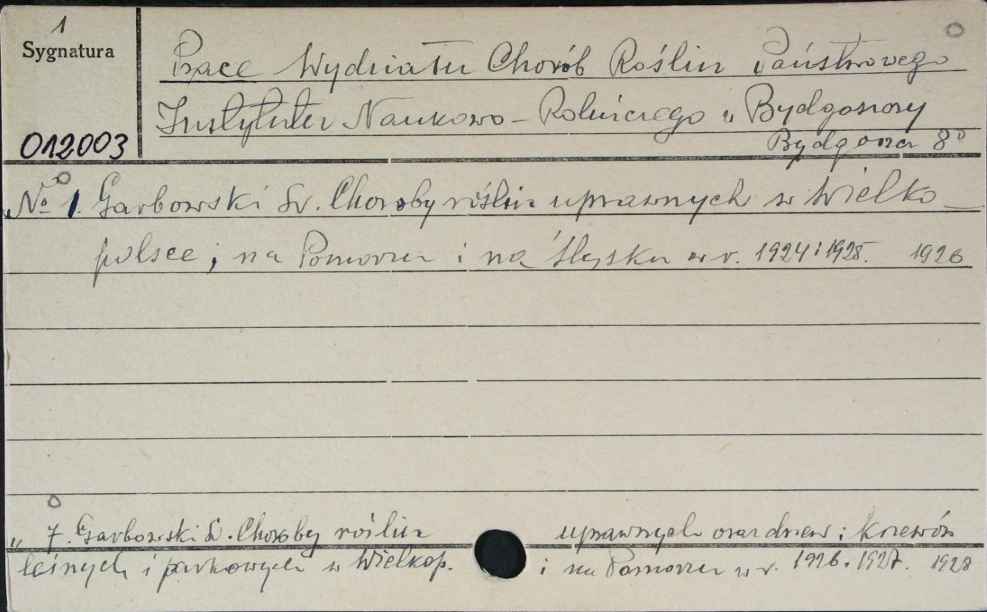 1
Sygnatura
012003
Prace Wydziału Chorób Roślin Państwowego
Instytutu Naukowo-Rolniczego w Bydgoszczy
Bydgoszcz 8°
№ 1. Garbowski L. Choroby roślin uprawnych w Wielko-
polsce, na Pomorzu i na Śląsku w r. 1924 i 1925. 1926
„ 7. Garbowski L. Choroby roślin uprawnych oraz drzew i krzewów
leśnych i parkowych w Wielkop. i na Pomorzu w r. 1926. 1927. 1928